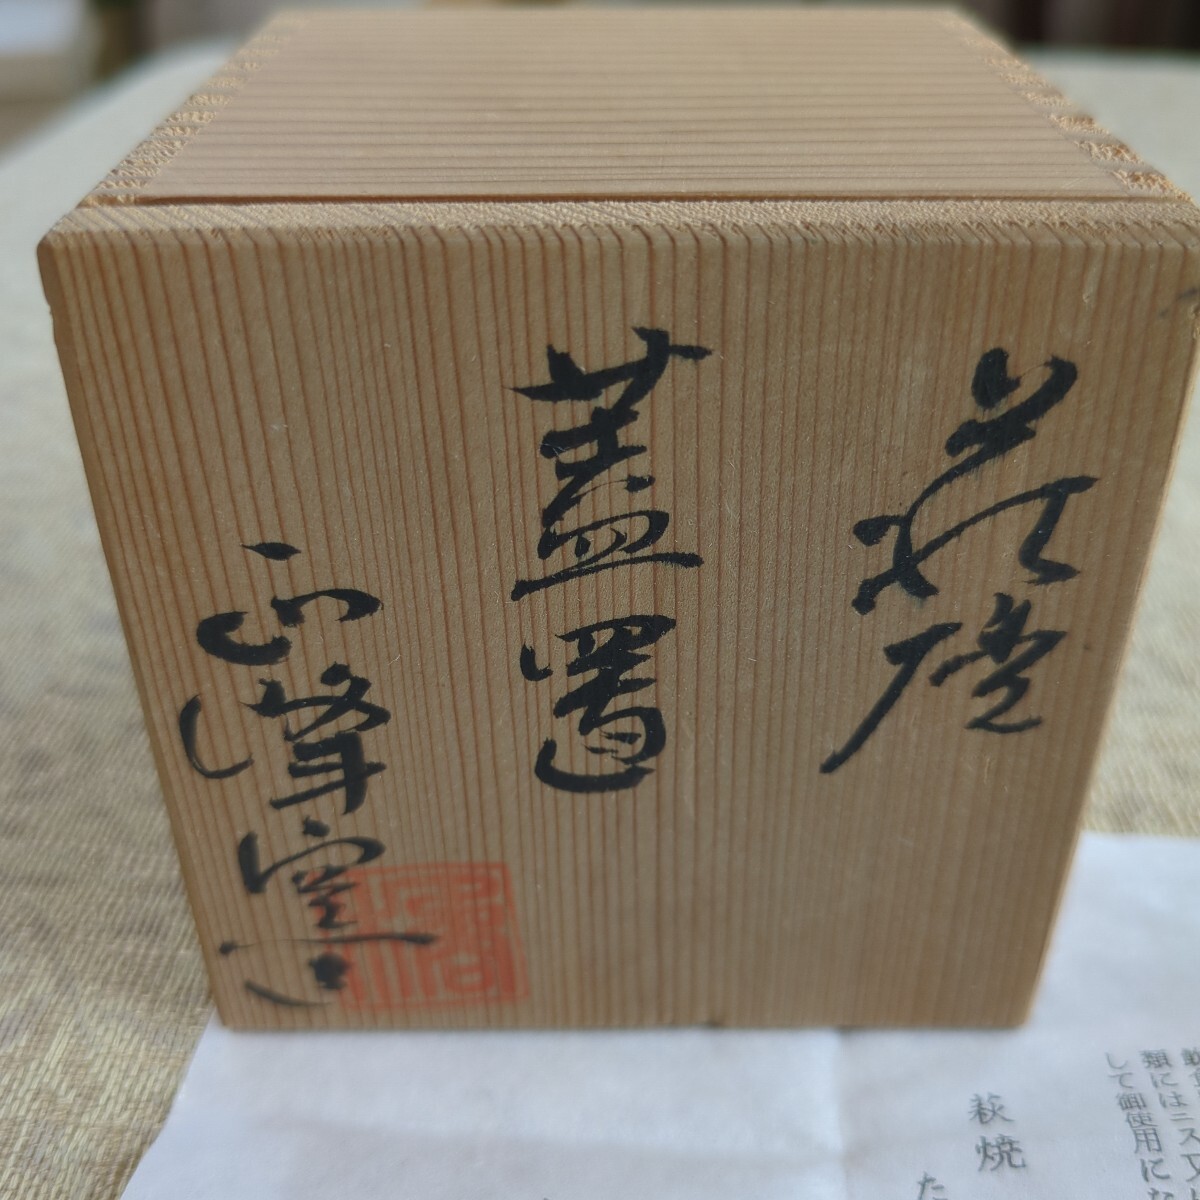 萩焼
蓋置
正峰窯造
類にはニス又は
して御使用にな
萩焼
た